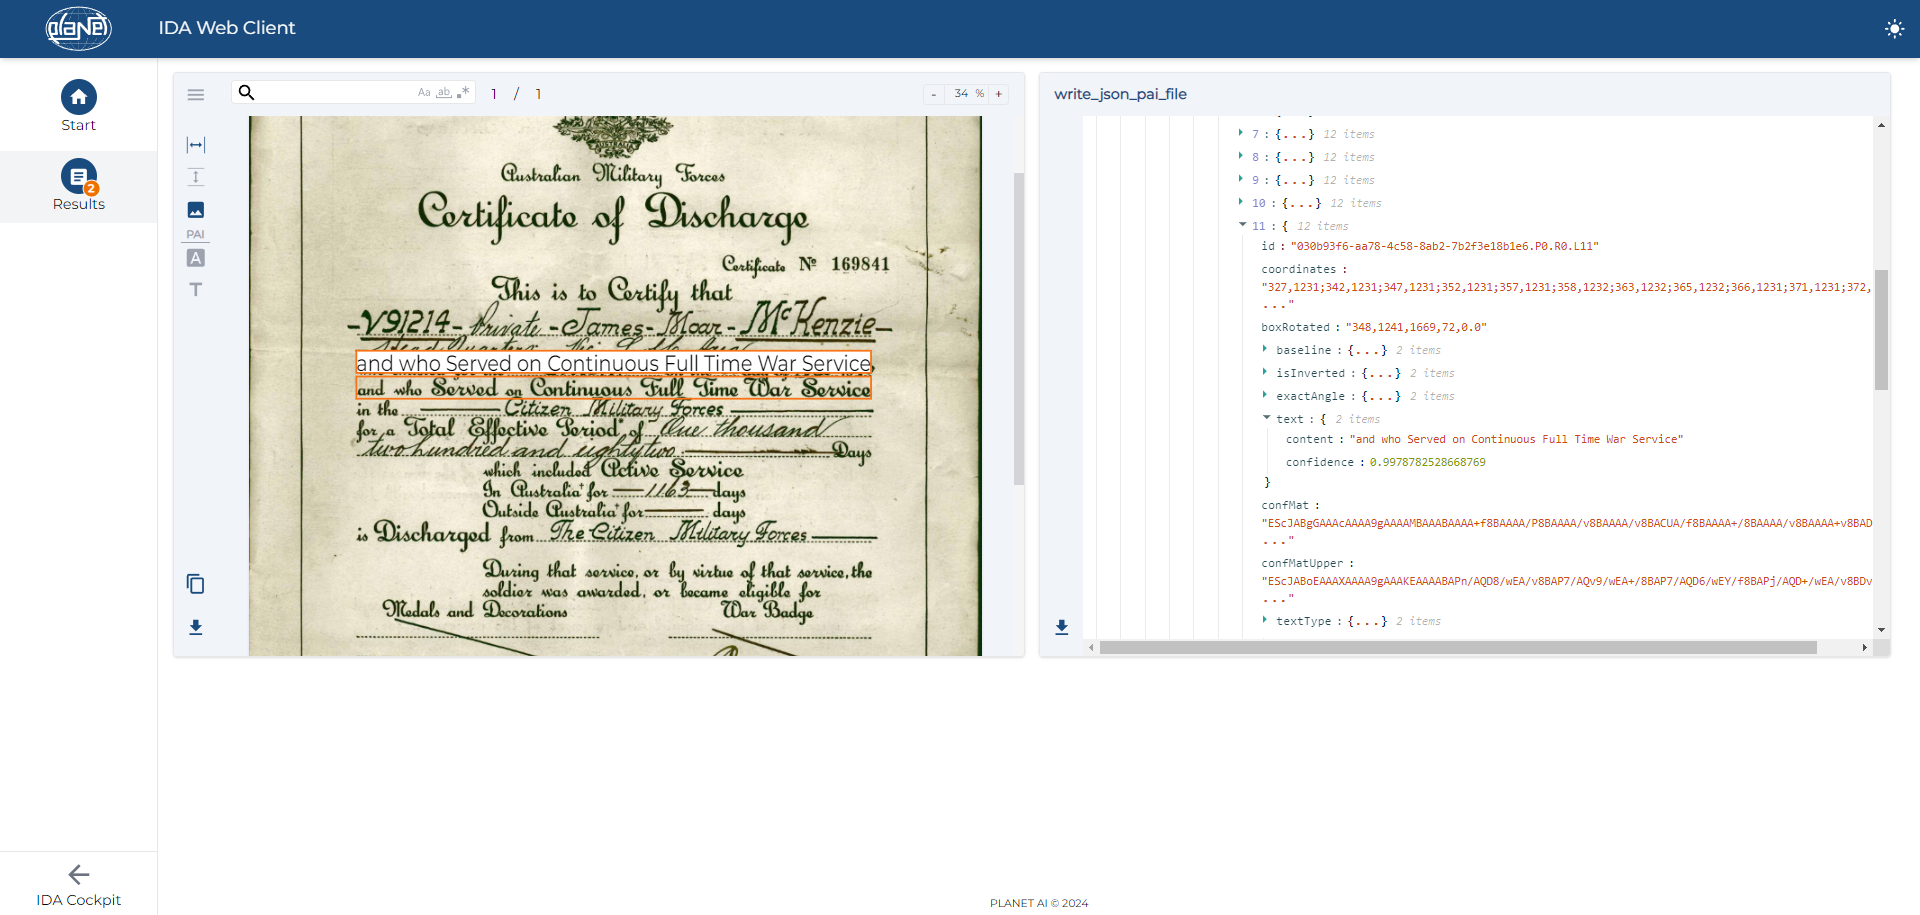 planet
IDA Web Client
Start
2
Results
IDA Cockpit
Aa ab .*
1 / 1
- 34 % +
PAI
A
T
AUSTRALIA
Australian Military Forces
Certificate of Discharge
Certificate Nº 169841
This is to Certify that
-V91214- Private - James - Moar - McKenzie-
and who Served on Continuous Full Time War Service
and who Served on Continuous Full Time War Service
in the Citizen Military Forces
for a Total Effective Period* of One thousand
two hundred and eighty two Days
which included Active Service
In Australia+ for 1163 days
Outside Australia+ for days
is Discharged from The Citizen Military Forces
During that service, or by virtue of that service, the
soldier was awarded, or became eligible for
Medals and Decorations War Badge
write_json_pai_file
7 : {...} 12 items
8 : {...} 12 items
9 : {...} 12 items
10 : {...} 12 items
11 : { 12 items
id : "030b93f6-aa78-4c58-8ab2-7b2f3e18b1e6.P0.R0.L11"
coordinates :
"327,1231;342,1231;347,1231;352,1231;357,1231;358,1232;363,1232;365,1232;366,1231;371,1231;372,
..."
boxRotated : "348,1241,1669,72,0.0"
baseline : {...} 2 items
isInverted : {...} 2 items
exactAngle : {...} 2 items
text : { 2 items
content : "and who Served on Continuous Full Time War Service"
confidence : 0.9978782528668769
}
confMat :
"EScJABgGAAAcAAAA9gAAAAMBAAABAAAA+f8BAAAA/P8BAAAA/v8BAAAA/v8BACUA/f8BAAAA+/8BAAAA/v8BAAAA+v8BAD
..."
confMatUpper :
"EScJABoEAAAXAAAA9gAAAKEAAAABAPn/AQD8/wEA/v8BAP7/AQv9/wEA+/8BAP7/AQD6/wEY/f8BAPj/AQD+/wEA/v8BDv
..."
textType : {...} 2 items
PLANET AI © 2024